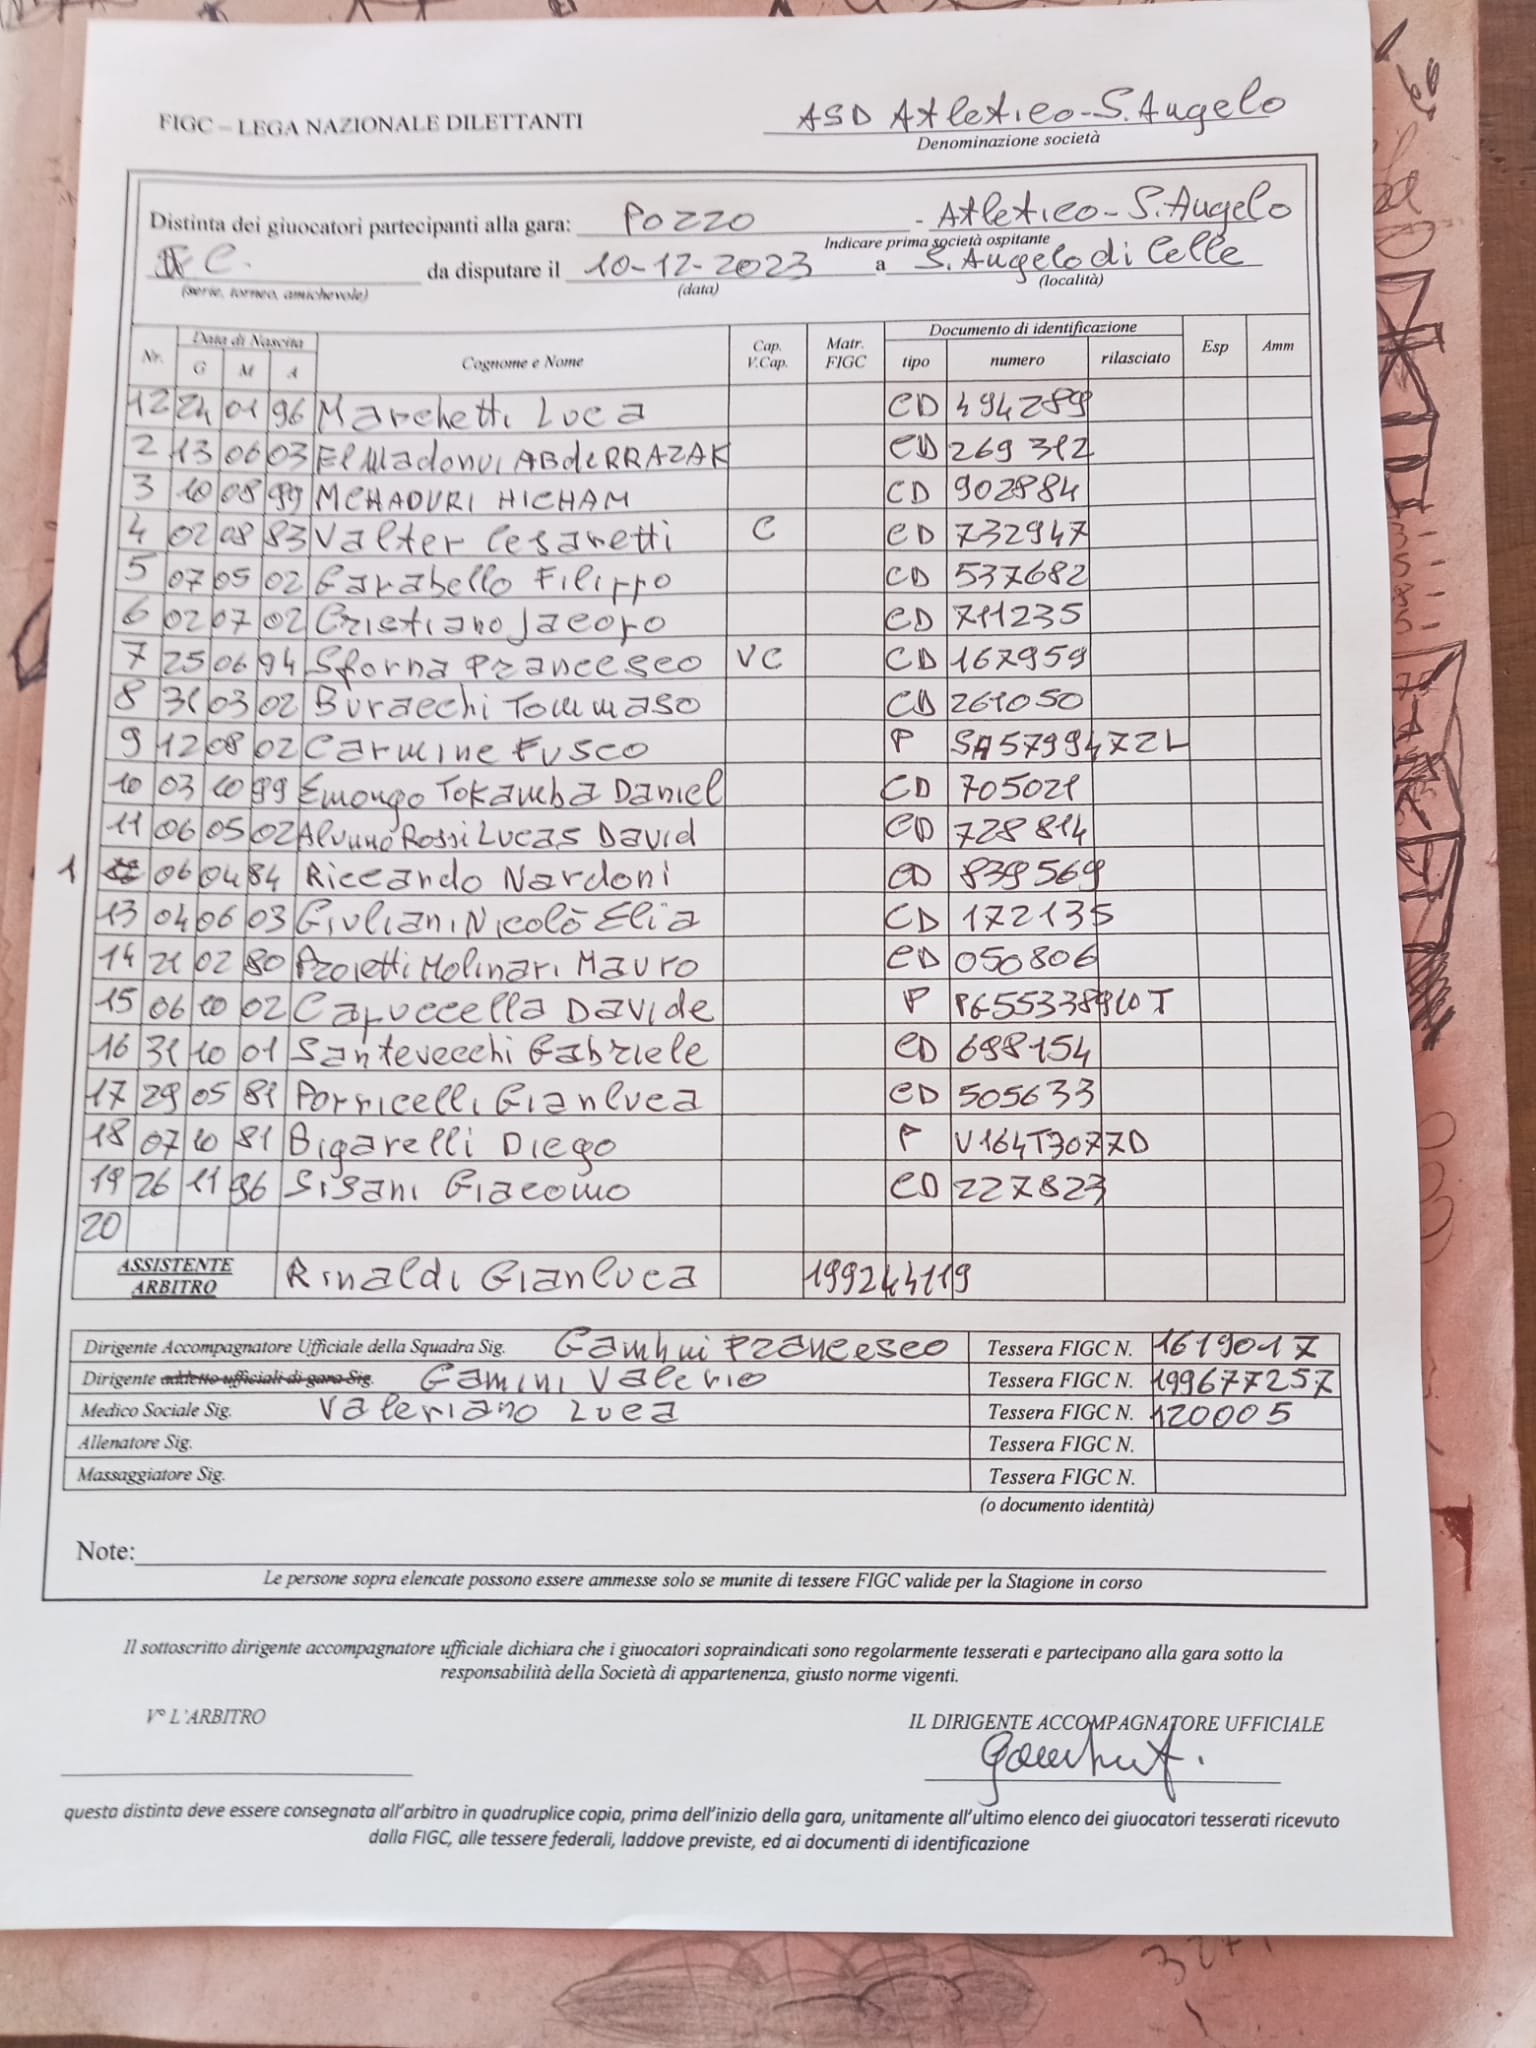 FIGC – LEGA NAZIONALE DILETTANTI ASD Atletico-S.Angelo
Denominazione società
Distinta dei giuocatori partecipanti alla gara: Pozzo - Atletico-S.Angelo
Indicare prima società ospitante
C. da disputare il 10-12-2023 a S.Angelo di Celle
(serie, torneo, amichevole) (data) (località)
Nr. Data di Nascita G M A Cognome e Nome Cap. V.Cap. Matr. FIGC Documento di identificazione tipo numero rilasciato Esp Amm
12 24 01 96 Marchetti Luca CD 494289
2 13 06 03 ABdeRRAZAK CD 269312
3 10 08 99 MCHAOURI HICHAM CD 902884
4 02 08 83 Valter Cesaretti C CD 732947
5 07 05 02 Garabello Filippo CD 537682
6 02 07 02 Cristiano Jacopo CD 711235
7 25 06 94 Sforna Francesco VC CD 167959
8 31 03 02 Buracchi Tommaso CD 261050
9 12 08 02 Carmine Fusco P SA5799472L
10 03 10 99 Emongo Tokamba Daniel CD 705021
11 06 05 02 Alunno Rossi Lucas David CD 728814
1 06 04 84 Riccardo Nardoni CD 839569
13 04 06 03 Giuliani Nicolò Elia CD 172135
14 21 02 80 Proietti Molinari Mauro CD 050806
15 06 10 02 Capuccella Davide P PG5533891OT
16 31 10 01 Santevecchi Gabriele CD 698154
17 29 05 81 Porricelli Gianluca CD 505633
18 07 10 81 Bigarelli Diego P V164T3077D
19 26 11 96 Sisani Giacomo CD 227823
20
ASSISTENTE ARBITRO Rinaldi Gianluca 199244119
Dirigente Accompagnatore Ufficiale della Squadra Sig. Francesco Tessera FIGC N. 1619017
Dirigente addetto ufficiali di gara Sig. Gamini Valerio Tessera FIGC N. 199677257
Medico Sociale Sig. Valeriano Luca Tessera FIGC N. 120005
Allenatore Sig. Tessera FIGC N.
Massaggiatore Sig. Tessera FIGC N.
(o documento identità)
Note:
Le persone sopra elencate possono essere ammesse solo se munite di tessere FIGC valide per la Stagione in corso
Il sottoscritto dirigente accompagnatore ufficiale dichiara che i giuocatori sopraindicati sono regolarmente tesserati e partecipano alla gara sotto la
responsabilità della Società di appartenenza, giusto norme vigenti.
V° L'ARBITRO IL DIRIGENTE ACCOMPAGNATORE UFFICIALE
questa distinta deve essere consegnata all'arbitro in quadruplice copia, prima dell'inizio della gara, unitamente all'ultimo elenco dei giuocatori tesserati ricevuto
dalla FIGC, alle tessere federali, laddove previste, ed ai documenti di identificazione